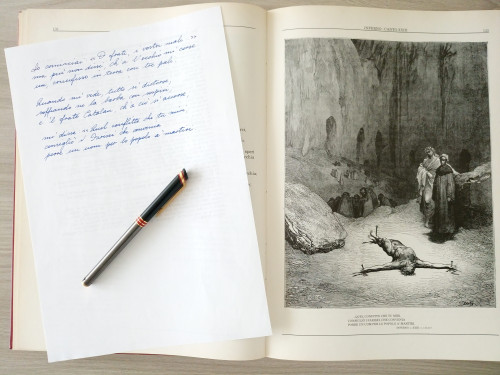 INFERNO - CANTO XXIII
Io cominciai: «O frati, i vostri mali »;
ma più non dissi, ch'a l'occhio mi corse
un, crocifisso in terra con tre pali.
Quando mi vide, tutto si distorse,
soffiando ne la barba con sospiri;
e 'l frate Catalan, ch'a ciò s'accorse,
mi disse: «Quel confitto che tu miri,
consigliò i Farisei che convenia
porre un uom per lo popolo a' martiri.
QUEL CONFITTO CHE TU MIRI,
CONSIGLIÒ I FARISEI CHE CONVENIA
PORRE UN UOM PER LO POPOLO A' MARTIRI